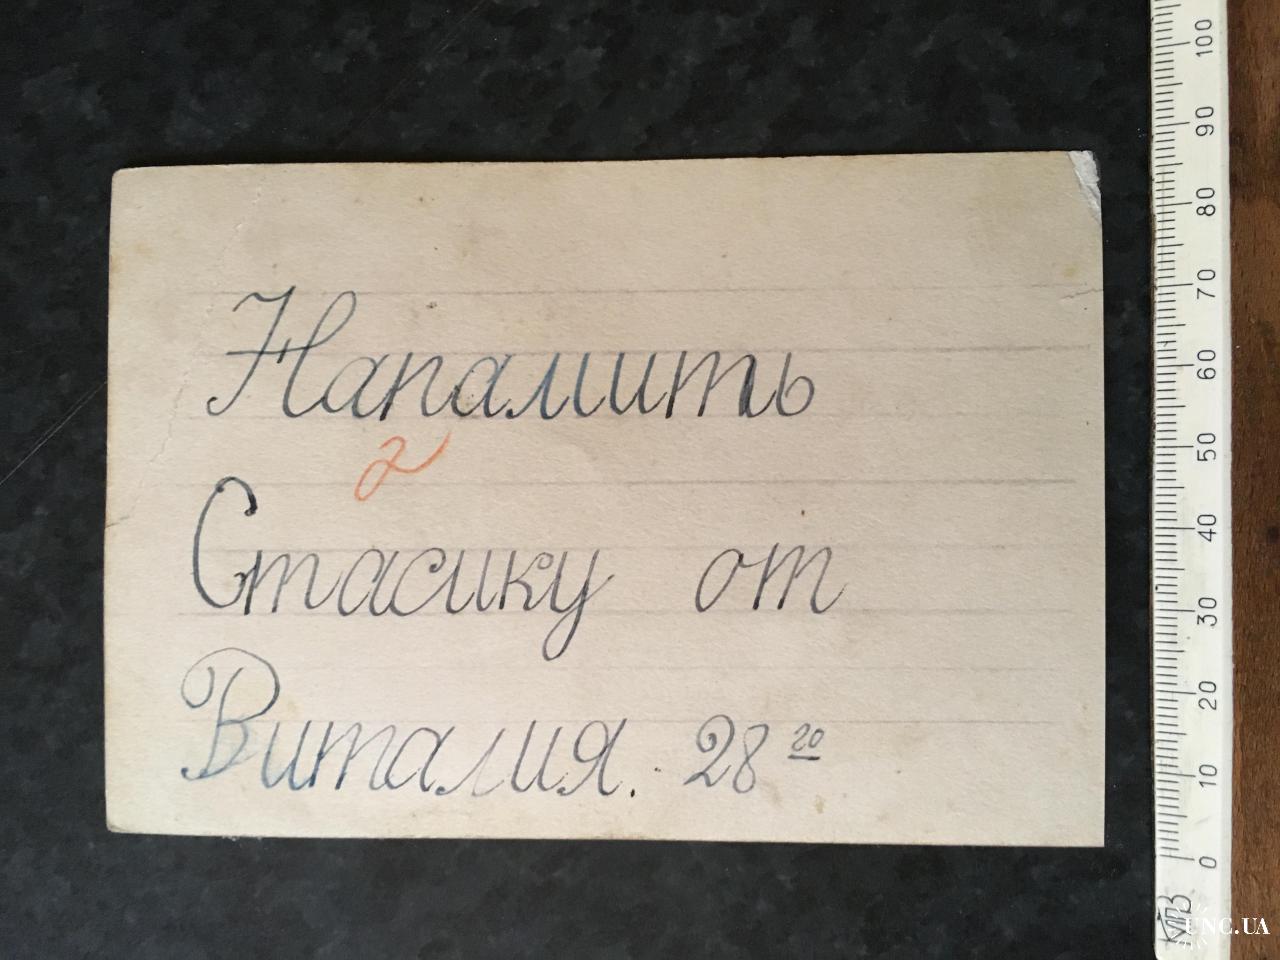 Напамить
2
Стасику от
Виталия. 28 20
100
90
80
70
60
50
40
30
20
10
0
КПЗ
UNC.UA